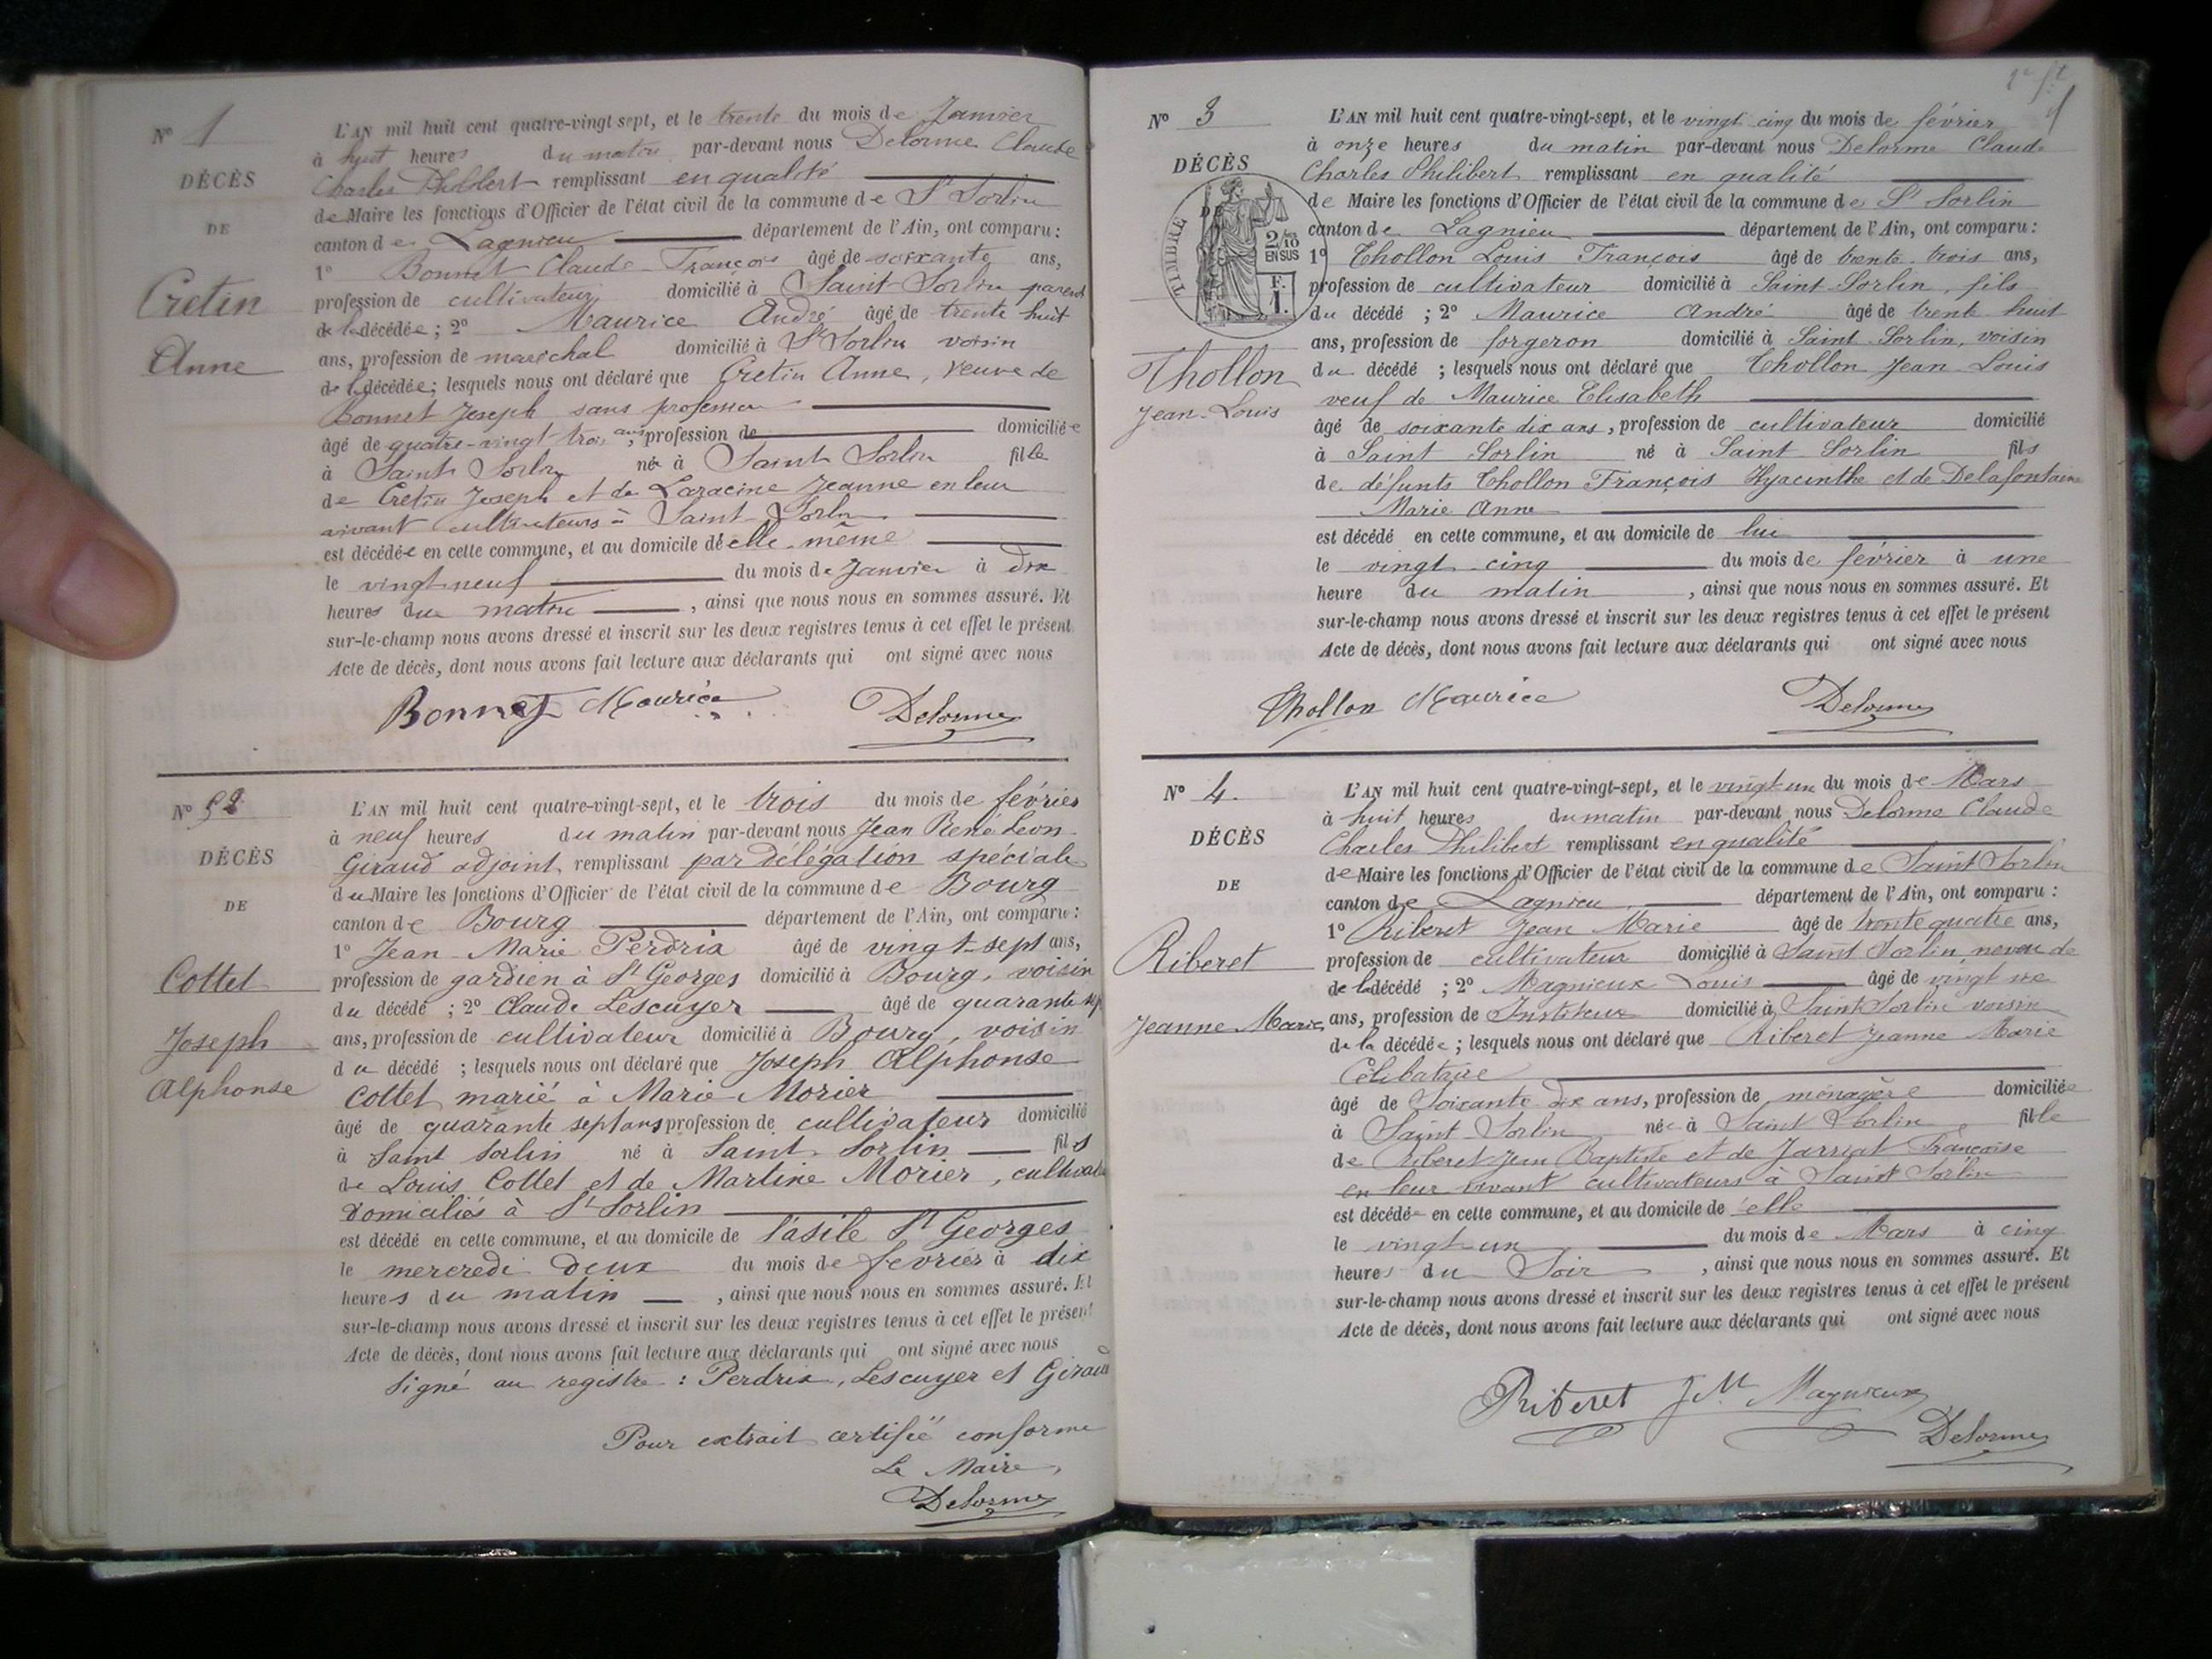 N° 1
DÉCÈS
DE
Cretin
Anne
L'AN mil huit cent quatre-vingt-sept, et le trente du mois de Janvier
à huit heures du matin par-devant nous Delorme Claude
Charles Philibert remplissant en qualité
de Maire les fonctions d'Officier de l'état civil de la commune de St Sorlin
canton de Lagnieu département de l'Ain, ont comparu :
1° Bonnet Claude François âgé de soixante ans,
profession de cultivateur domicilié à Saint Sorlin parent
de la décédée ; 2° Maurice André âgé de trente huit
ans, profession de maréchal domicilié à St Sorlin voisin
de la décédée ; lesquels nous ont déclaré que Cretin Anne, veuve de
Bonnet Joseph sans profession
âgé de quatre-vingt-trois ans, profession de domiciliée
à Saint Sorlin née à Saint Sorlin fille
de Cretin Joseph et de Laracine Jeanne en leur
vivant cultivateurs à Saint Sorlin
est décédée en cette commune, et au domicile de elle même
le vingt neuf du mois de Janvier à dix
heures du matin , ainsi que nous nous en sommes assuré. Et
sur-le-champ nous avons dressé et inscrit sur les deux registres tenus à cet effet le présent
Acte de décès, dont nous avons fait lecture aux déclarants qui ont signé avec nous
Bonnet Maurice Delorme
N° 2
DÉCÈS
DE
Cottet
Joseph
Alphonse
L'AN mil huit cent quatre-vingt-sept, et le trois du mois de février
à neuf heures du matin par-devant nous Jean René Léon
Giraud adjoint, remplissant par délégation spéciale
du Maire les fonctions d'Officier de l'état civil de la commune de Bourg
canton de Bourg département de l'Ain, ont comparu :
1° Jean Marie Perdrix âgé de vingt-sept ans,
profession de gardien à St Georges domicilié à Bourg, voisin
du décédé ; 2° Claude Lescuyer âgé de quarante sept
ans, profession de cultivateur domicilié à Bourg, voisin
du décédé ; lesquels nous ont déclaré que Joseph Alphonse
Cottet marié à Marie Morier
âgé de quarante sept ans profession de cultivateur domicilié
à Saint Sorlin né à Saint Sorlin fils
de Louis Cottet et de Martine Morier, cultivate
domiciliés à St Sorlin
est décédé en cette commune, et au domicile de l'asile St Georges
le mercredi deux du mois de février à dix
heures du matin , ainsi que nous nous en sommes assuré. Et
sur-le-champ nous avons dressé et inscrit sur les deux registres tenus à cet effet le présent
Acte de décès, dont nous avons fait lecture aux déclarants qui ont signé avec nous
Signé au registre : Perdrix, Lescuyer et Giraud
Pour extrait certifié conforme
Le Maire,
Delorme
N° 3
DÉCÈS
DE
TIMBRE
2/10
EN SUS
F.
1.
Thollon
Jean-Louis
L'AN mil huit cent quatre-vingt-sept, et le vingt cinq du mois de février
à onze heures du matin par-devant nous Delorme Claude
Charles Philibert remplissant en qualité
de Maire les fonctions d'Officier de l'état civil de la commune de St Sorlin
canton de Lagnieu département de l'Ain, ont comparu :
1° Thollon Louis François âgé de trente-trois ans,
profession de cultivateur domicilié à Saint-Sorlin, fils
du décédé ; 2° Maurice André âgé de trente huit
ans, profession de forgeron domicilié à Saint-Sorlin, voisin
du décédé ; lesquels nous ont déclaré que Thollon Jean-Louis
veuf de Maurice Elisabeth
âgé de soixante dix ans, profession de cultivateur domicilié
à Saint Sorlin né à Saint Sorlin fils
de défunts Thollon François Hyacinthe et de Delafontaine
Marie Anne
est décédé en cette commune, et au domicile de lui
le vingt-cinq du mois de février à une
heure du matin , ainsi que nous nous en sommes assuré. Et
sur-le-champ nous avons dressé et inscrit sur les deux registres tenus à cet effet le présent
Acte de décès, dont nous avons fait lecture aux déclarants qui ont signé avec nous
Thollon Maurice Delorme
N° 4.
DÉCÈS
DE
Riberet
Jeanne Marie
L'AN mil huit cent quatre-vingt-sept, et le vingt-un du mois de Mars
à huit heures du matin par-devant nous Delorme Claude
Charles Philibert remplissant en qualité
de Maire les fonctions d'Officier de l'état civil de la commune de Saint Sorlin
canton de Lagnieu département de l'Ain, ont comparu :
1° Riberet Jean Marie âgé de trente quatre ans,
profession de cultivateur domicilié à Saint Sorlin, neveu de
de la décédé ; 2° Magnieux Louis âgé de vingt
ans, profession de Instituteur domicilié à Saint Sorlin voisin
de la décédée ; lesquels nous ont déclaré que Riberet Jeanne Marie
Célibataire
âgé de Soixante dix ans, profession de ménagère domiciliée
à Saint-Sorlin née à Saint Sorlin fille
de Riberet Jean Baptiste et de Jarriat Françoise
en leur vivant cultivateurs à Saint Sorlin
est décédée en cette commune, et au domicile de elle
le vingt-un du mois de Mars à cinq
heures du Soir , ainsi que nous nous en sommes assuré. Et
sur-le-champ nous avons dressé et inscrit sur les deux registres tenus à cet effet le présent
Acte de décès, dont nous avons fait lecture aux déclarants qui ont signé avec nous
Riberet J M Magnieux
Delorme